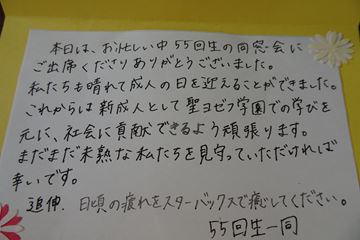 本日は、お忙しい中55回生の同窓会に
ご出席くださりありがとうございました。
私たちも晴れて成人の日を迎えることができました。
これからは新成人として聖ヨゼフ学園での学びを
元に、社会に貢献できるよう頑張ります。
まだまだ未熟な私たちを見守っていただければ
幸いです。
追伸. 日頃の疲れをスターバックスで癒してください。
55回生一同